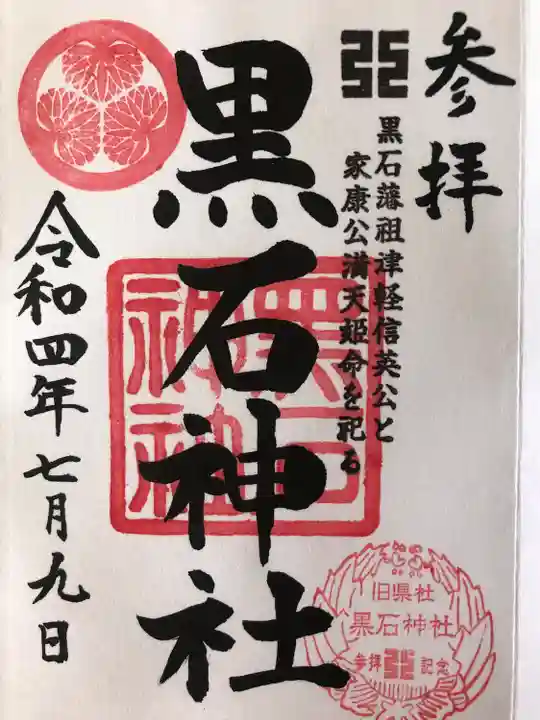 参拝
黒石藩祖津軽信英公と
家康公満天姫命を祀る
黒石神社
黒石
神社
令和四年七月九日
旧県社
黒石神社
参拝 記念